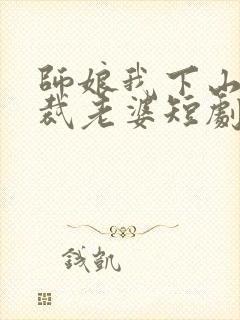 師娘我下山
裁老婆短劇
錢凱